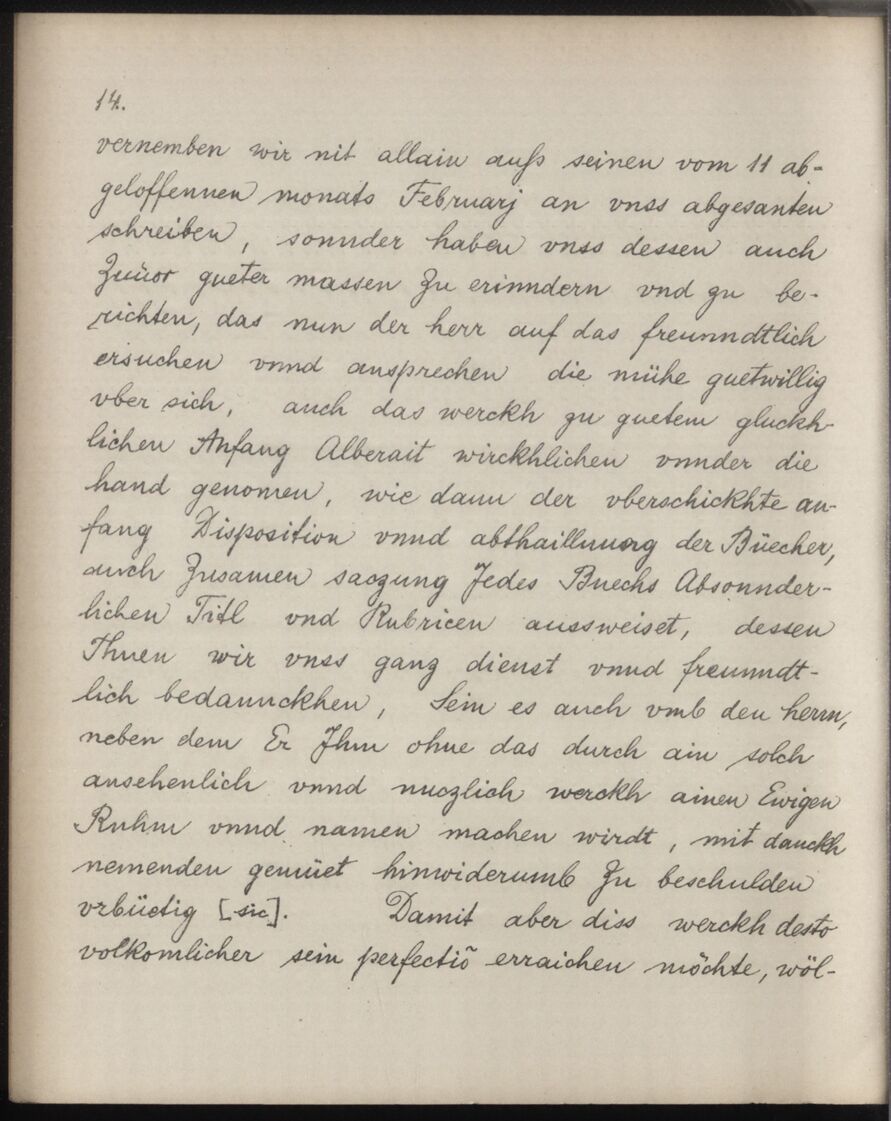 14.
vernemben wir nit allain aufs seinen vom 11 ab-
geloffennen monats Februarj an vnss abgesanten
schreiben, sonnder haben vnss dessen auch
Zuüor gueter massen Zu erinndern vnd zu be-
richten, das nun der herr auf das freunndtlich
ersuchen vnnd ansprechen die mühe guetwillig
vber sich, auch das werckh zu guetem gluckh-
lichen Anfang Alberait wirckhlichen vnnder die
hand genomen, wie dann der vberschickhte an-
fang Disposition vnnd abthaillnung der Büecher,
auch Zusamen saczung Jedes Buechs Absonnder-
lichen Titl vnd Rubricen aussweiset, dessen
Thuen wir vnss ganz dienst vnnd freunndt-
lich bedannckhen, Sein es auch vmb den herrn,
neben dem Er Jhm ohne das durch ain solch
ansehenlich vnnd nuczlich werckh ainen Ewigen
Ruhm vnnd namen machen wirdt, mit danckh
nemenden gemüet hinwiderumb Zu beschulden
vrbüetig [sic]. Damit aber diss werckh desto
volkomlicher sein perfectiõ erraichen möchte, wöl-